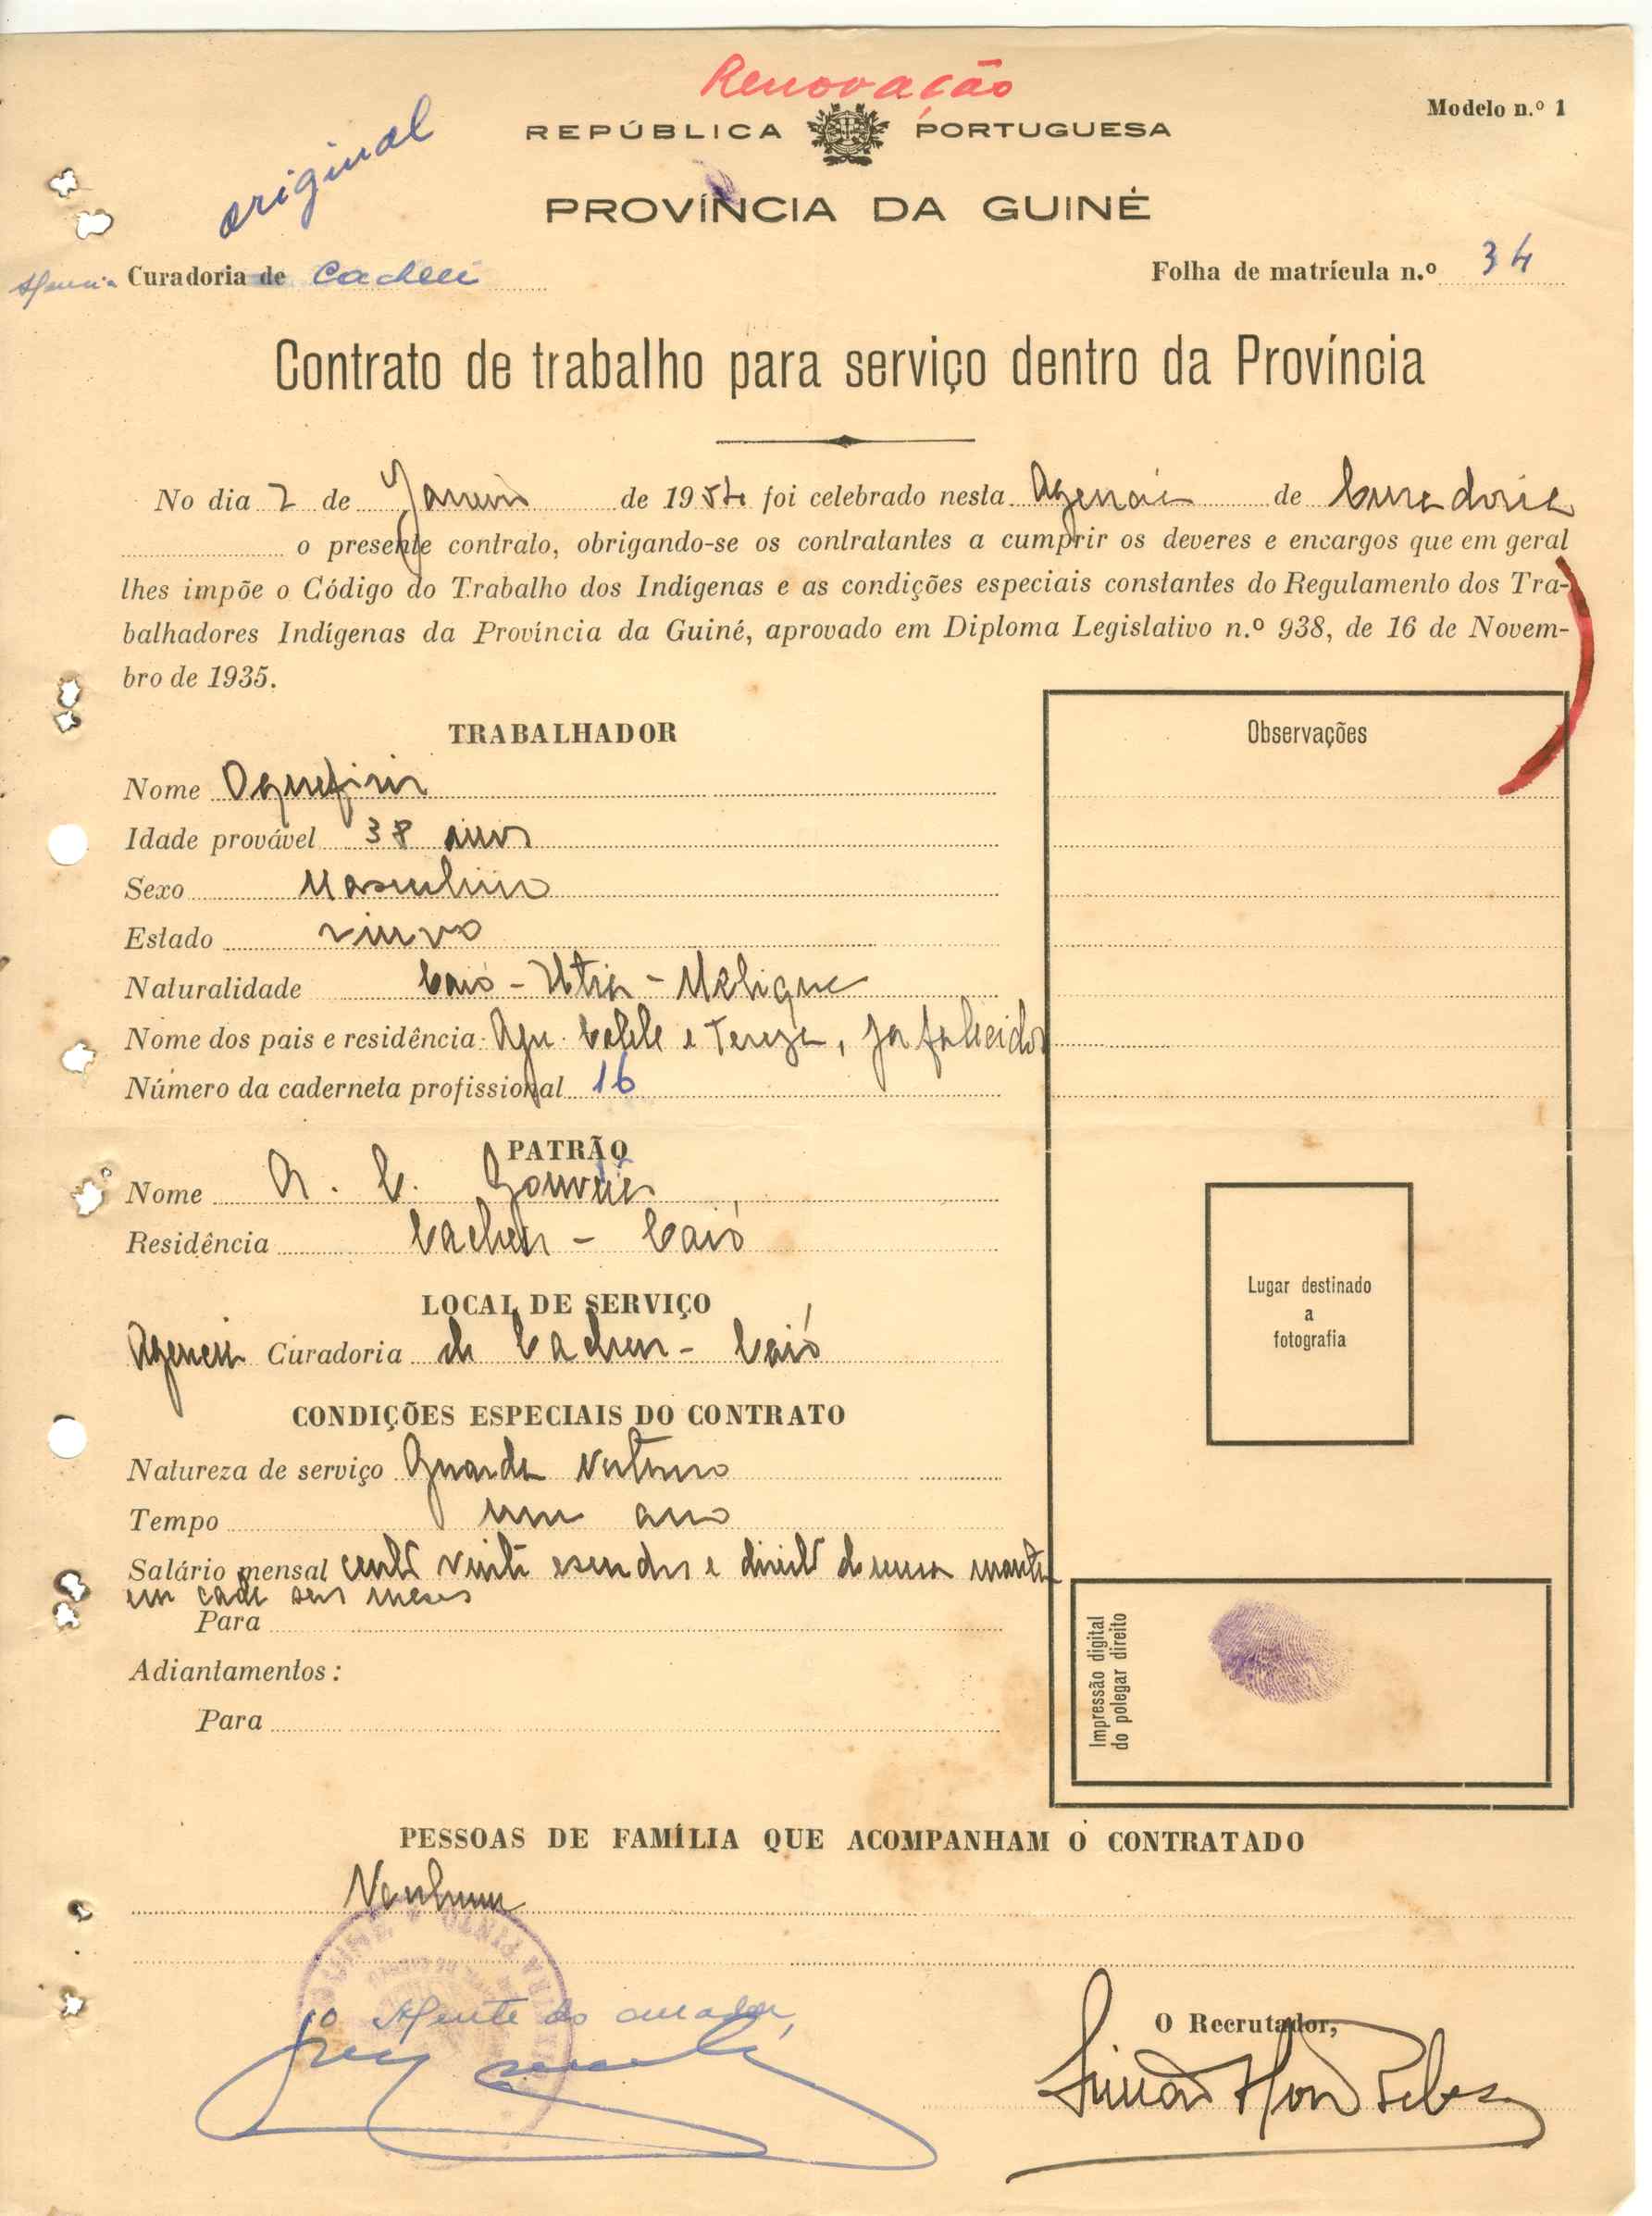 Renovação
original
REPÚBLICA PORTUGUESA
Modelo n.º 1
PROVÍNCIA DA GUINÉ
Curadoria de Cacheu
Folha de matrícula n.º 34
Contrato de trabalho para serviço dentro da Província
No dia 2 de Janeiro de 1954 foi celebrado nesta Agencia de Curadoria
o presente contrato, obrigando-se os contratantes a cumprir os deveres e encargos que em geral
lhes impõe o Código do Trabalho dos Indígenas e as condições especiais constantes do Regulamento dos Tra-
balhadores Indígenas da Província da Guiné, aprovado em Diploma Legislativo n.º 938, de 16 de Novem-
bro de 1935.
TRABALHADOR
Observações
Nome
Idade provável 38 anos
Sexo Masculino
Estado viuvo
Naturalidade Caió -
Nome dos pais e residência e Tereza, já falecidos
Número da caderneta profissional 16
PATRÃO
Nome A. C. Gouveia
Residência Cacheu - Caió
Lugar destinado
a
fotografia
LOCAL DE SERVIÇO
Agencia Curadoria de Cacheu - Caió
CONDIÇÕES ESPECIAIS DO CONTRATO
Natureza de serviço Guarda Nocturno
Tempo um ano
Salário mensal cento vinte escudos e direito de uma manta
em cada seis meses
Para
Adiantamentos:
Para
Impressão digital
do polegar direito
PESSOAS DE FAMÍLIA QUE ACOMPANHAM O CONTRATADO
Nenhum
O Agente do curador,
O Recrutador,